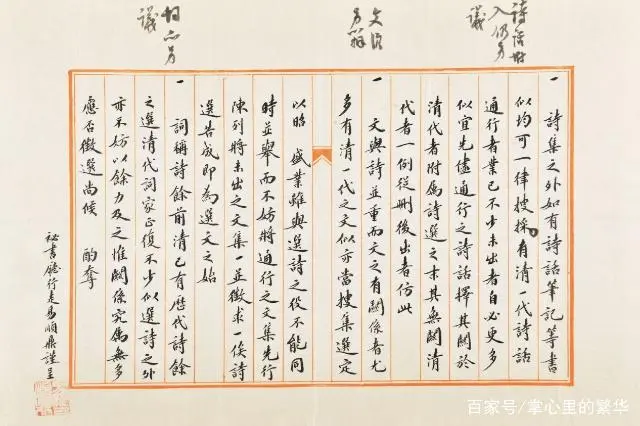 詩話附
入仍另
議
文須
另辦
詞亦另
議
一 詩集之外如有詩話筆記等書
似均可一律搜採有清一代詩話
通行者業已不少未出者自必更多
似宜先儘通行之詩話擇其關於
清代者附為詩選之末其無關清
代者一例從刪後出者仿此
一 文與詩並重而文之有關係者尤
多有清一代之文似亦當搜集選定
以昭 盛業雖與選詩之役不能同
時並舉而不妨將通行之文集先行
陳列將未出之文集一並徵求一俟詩
選告成即為選文之始
一 詞稱詩餘前清已有歷代詩餘
之選清代詞家正復不少似選詩之外
亦不妨以餘力及之惟關係究屬無多
應否徵選尚候 酌奪
祕書廳行走易順鼎謹呈
百家号/掌心里的繁华